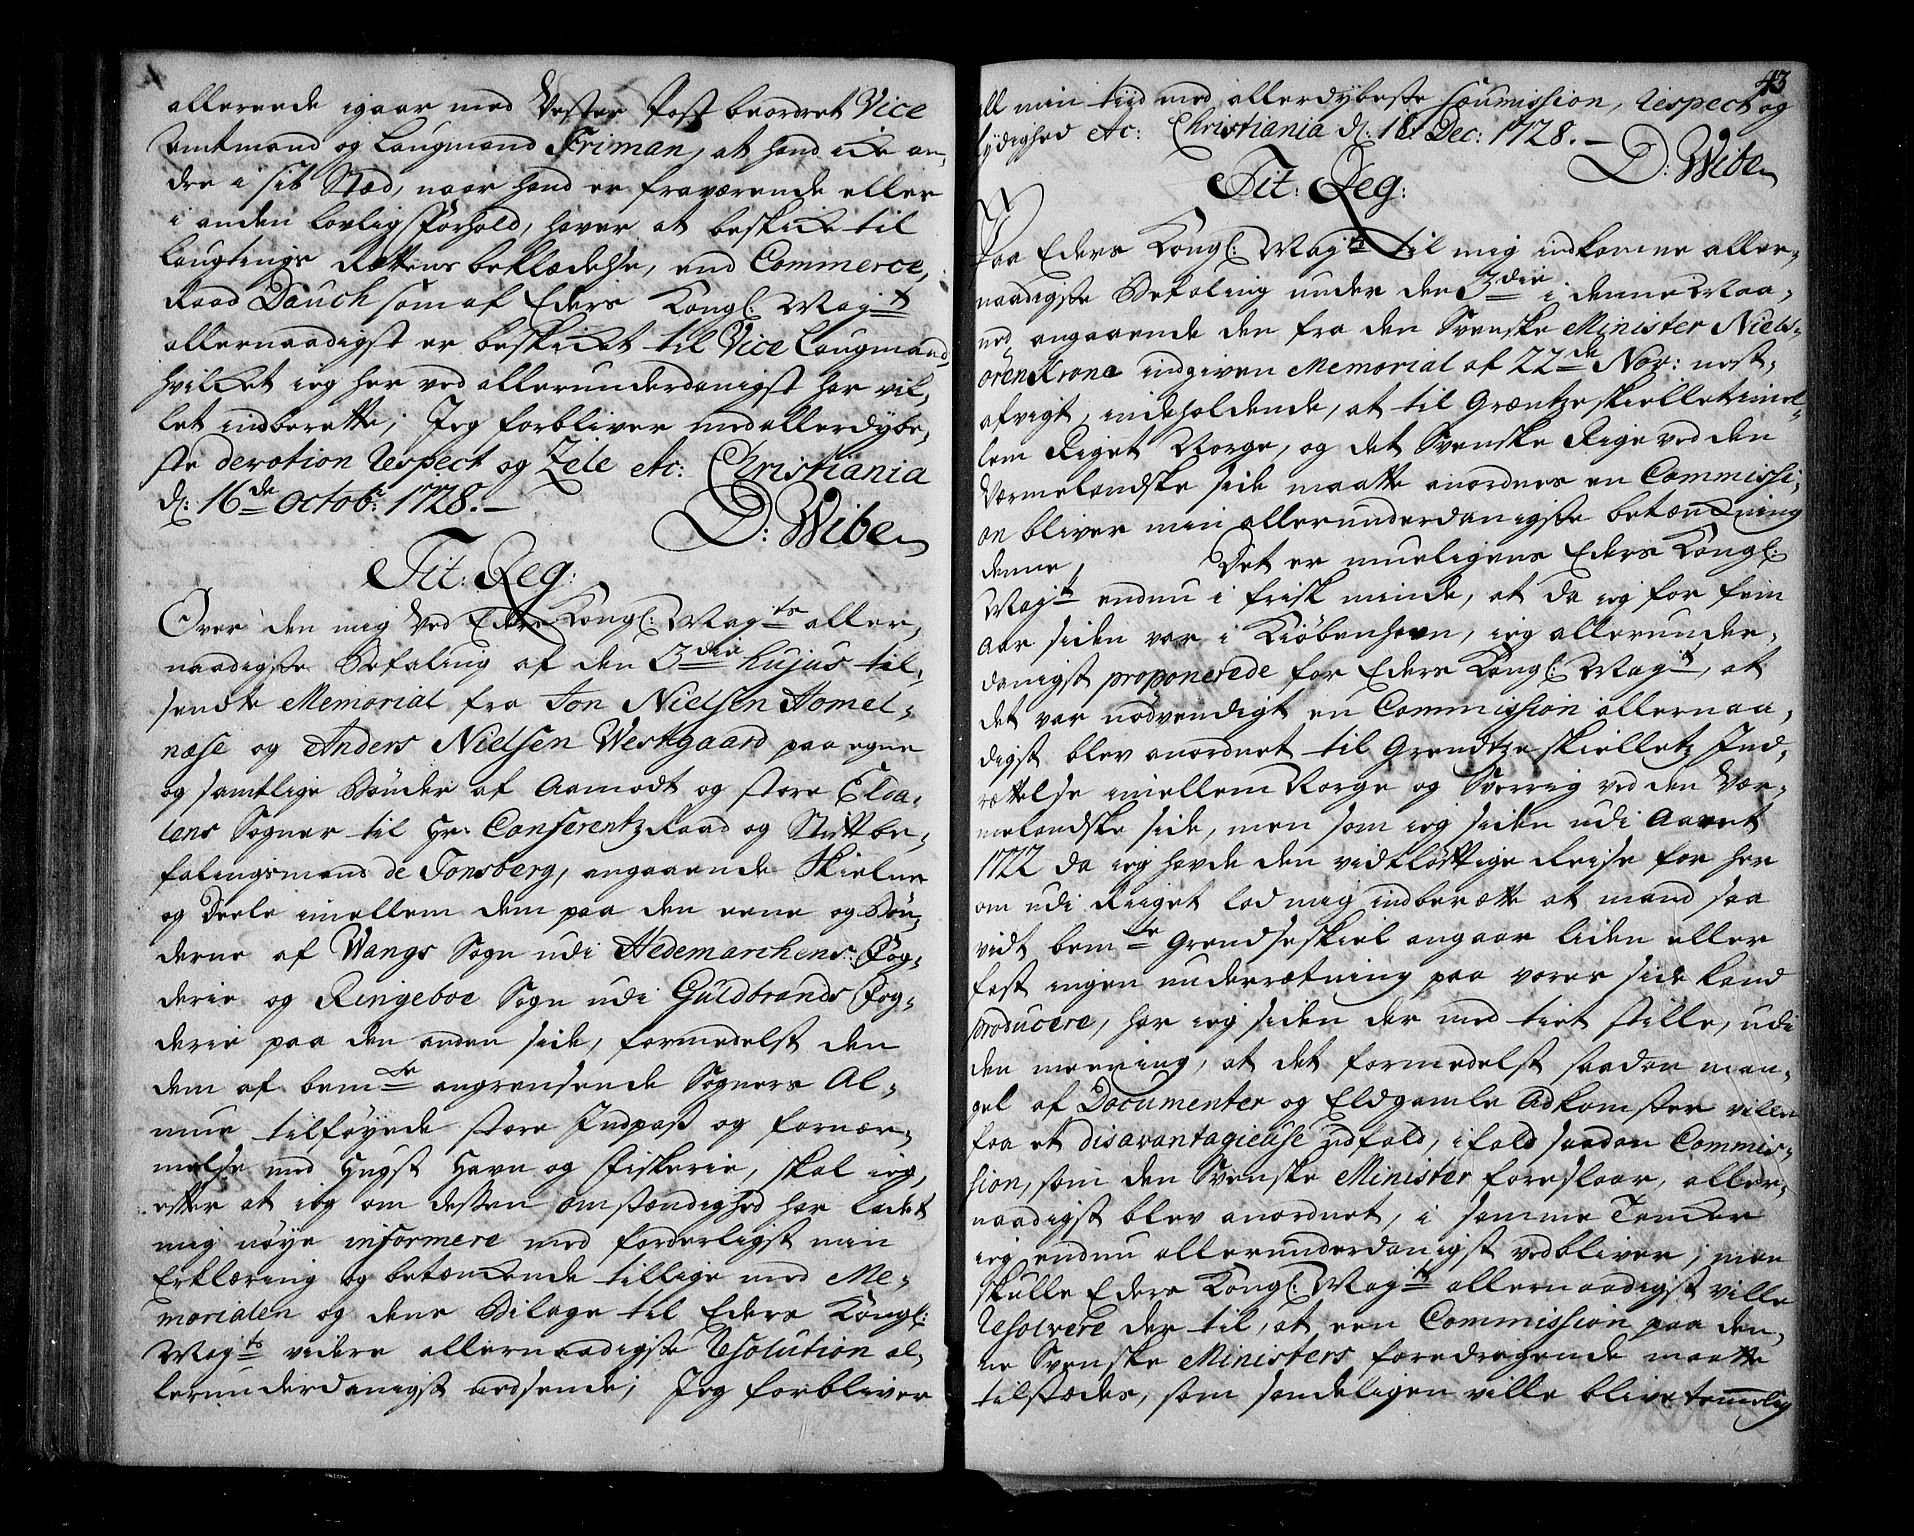 allereede igaar med Vester Post beordret Vice
Amtmand og Laugmand Friman, at hand icke an„
dre i sit Stæd, naar hand er fraværende eller
i anden lovlig Forhold, haver at beskicke til
Laugtings Rettens beklædelse, end Commerce„
Raad Dauch som af Eders Kongl: Mayts
allernaadigst er beskicket til Vice Laugmand
hvilcket ieg her ved allerunderdanigst har vil„
let indberette; Jeg forbliver med allerdybe„
ste devotion Respect og Zele etc: Christiania
d: 16de Octob: 1728.–
D: Wibe
Tit: Reg:
Over den mig ved Eders Kongl: Mayts aller„
naadigste Befaling af den 3die hujus til„
sendte Memorial fra Jon Nielsen Homel„
næse og Anders Nielsen Westgaard paa egne
og samtlige Bønder af Aamodt og store Elva„
lens Sogner til Hr: Conferentz Raad og Stiftbe„
falingsmand de Tonsberg, angaaende Skielne
og Deele imellem dem paa den eene og Bøn„
derne af Wangs Sogn udi Hedemarchens Fog„
derie og Ringeboe Sogn udi Guldbrands Fog„
derie paa den anden side, formedelst den
dem af bemte angrensende Sogners Al„
mue tilføyede store Indpass og fornær„
melse med Hugst Havn og Fiskerie, skal ieg,
etter at ieg om dessen omstændighed har ladet
mig nøye informere med forderligst min
Erklæring og betænckende tillige med Me„
morialen og dens Bilage til Eders Kongl:
Mayts videre allernaadigste Resolution al„
lerunderdanigst nedsende; Jeg forbliver
43
all min tiid med allerdybeste Soumission, Respect og
lydighed etc: Christiania d: 18 Dec: 1728.–
D: Wibe
Tit: Reg:
Paa Eders Kongl: Mayts til mig indkomne aller„
naadigste Befaling under den 3die i denne Maa„
ned angaaende den fra den Svenske Minister Niels„
ørenkrona indgiven Memorial af 22de Nov: nest„
afvigt, indeholdende, at til Grentze skiellet imel„
lem Riget Norge, og det Svenske Rige ved den
Wærmelandske side maatte anordnes en Commissi„
on bliver min allerunderdanigste betænckning
denne, Det er mueligens Eders Kongl:
Mayts endnu i frisk minde, at da ieg for fem
aar siden var i Kiøbenhavn, ieg allerunder„
danigst proponerede for Eders Kongl: Mayt, at
det var nødvendigt en Commission allernaa„
digst blev anordnet til Grendtze skiellets Ind„
rettelse imellem Norge og Sverrig ved den Vær„
melandske side, men som ieg siden udi Aaret
1722 da ieg havde den vidtløftige Reise for her
om udi Riiget lod mig indberette at mand saa
vidt bemte Grendseskiel angaar liden eller
fast ingen underretning paa vores side kand
producere, har ieg siden der med tiet stille, udi
den meening, at det formedelst saadan man„
gel af Documenter og Eldgamle Adkomster ville
faa et disavantagieuse udfald, ifald saadan Commis„
sion, som den Svenske Minister foreslaar, aller„
naadigst blev anordnet, i samme Tancker
ieg endnu allerunderdanigst vedbliver; men
skulle Eders Kongl: Mayts allernaadigst ville
Resolvere der til, at een Commission paa den„
ne Svenske Ministers foredragende maatte
tilstædes, som sandeligen ville blive temmelig